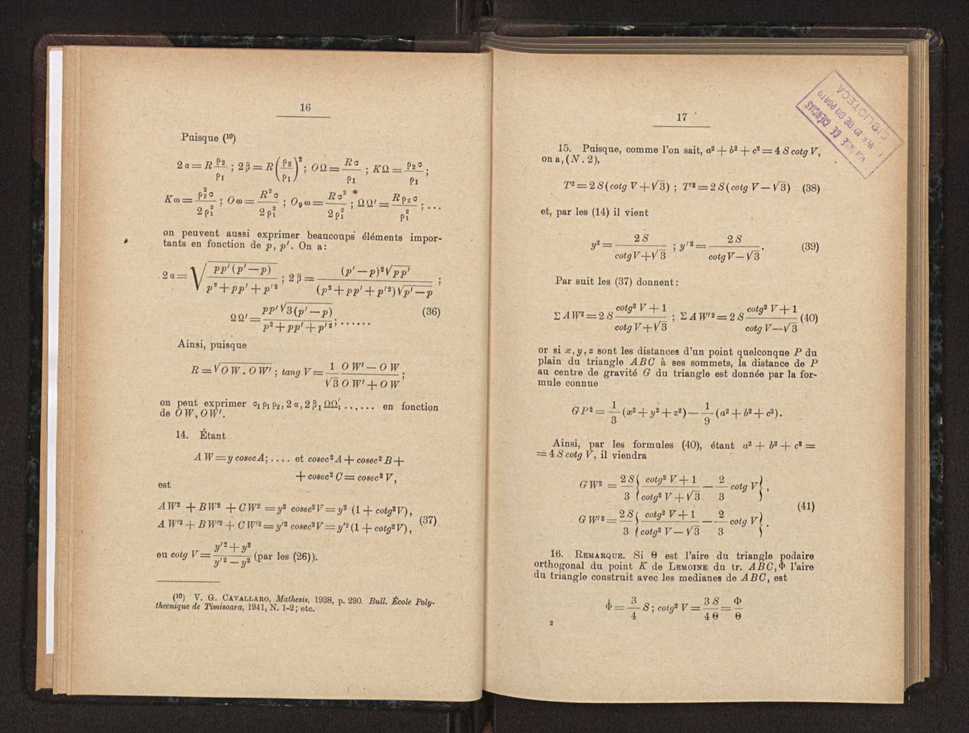 16
Puisque (¹⁰)
2α = R ρ₂/ρ₁ ; 2β = R (ρ₂/ρ₁)² ; OΩ = Rσ/ρ₁ ; KΩ = ρ₂σ/ρ₁ ;
Kω = ρ₂²σ/2ρ₁² ; Oω = R²σ/2ρ₁² ; O₉ω = Rσ²/2ρ₁² ; ΩΩ' = Rρ₂σ/ρ₁² ; ...
on peuvent aussi exprimer beaucoups éléments impor-
tants en fonction de p, p'. On a:
2α = √(pp'(p'—p)/(p²+pp'+p'²)) ; 2β = (p'—p)²√pp' / (p²+pp'+p'²)√p'—p ;
ΩΩ' = pp'√3(p'—p) / p²+pp'+p'² ; ...... (36)
Ainsi, puisque
R = √OW.OW' ; tang V = 1/√3 OW'—OW / OW'+OW ;
on peut exprimer σ₁ρ₁ρ₂, 2α, 2β₁ΩΩ', ...... en fonction
de OW, OW'.
14. Étant
AW = y cosec A; .... et cosec² A + cosec² B +
+ cosec² C = cosec² V,
est
AW² + BW² + CW² = y² cosec² V = y² (1 + cotg² V),
AW'² + BW'² + CW'² = y'² cosec² V = y'² (1 + cotg² V), (37)
ou cotg V = y'² + y² / y'² — y² (par les (26)).
(¹⁰) V. G. CAVALLARO, Mathesis, 1938, p. 290. Bull. École Poly-
thecnique de Timisoara, 1941, N. 1-2; etc.
17
15. Puisque, comme l'on sait, a² + b² + c² = 4 S cotg V,
on a, (N. 2),
T² = 2S(cotg V + √3) ; T'² = 2S(cotg V — √3) (38)
et, par les (14) il vient
y² = 2S / cotg V + √3 ; y'² = 2S / cotg V — √3 . (39)
Par suit les (37) donnent:
Σ AW² = 2S cotg² V + 1 / cotg V + √3 ; Σ AW'² = 2S cotg² V + 1 / cotg V — √3 (40)
or si x, y, z sont les distances d'un point quelconque P du
plain du triangle ABC à ses sommets, la distance de P
au centre de gravité G du triangle est donnée par la for-
mule connue
GP² = 1/3 (x² + y² + z²) — 1/9 (a² + b² + c²).
Ainsi, par les formules (40), étant a² + b² + c² =
= 4 S cotg V, il viendra
GW² = 2S/3 { cotg² V + 1 / cotg V + √3 — 2/3 cotg V } ,
GW'² = 2S/3 { cotg² V + 1 / cotg V — √3 — 2/3 cotg V } . (41)
16. REMARQUE. Si Θ est l'aire du triangle podaire
orthogonal du point K de LEMOINE du tr. ABC, Φ l'aire
du triangle construit avec les medianes de ABC, est
Φ = 3/4 S ; cotg² V = 3S/4Θ = Φ/Θ
2
BIBLIOTECA